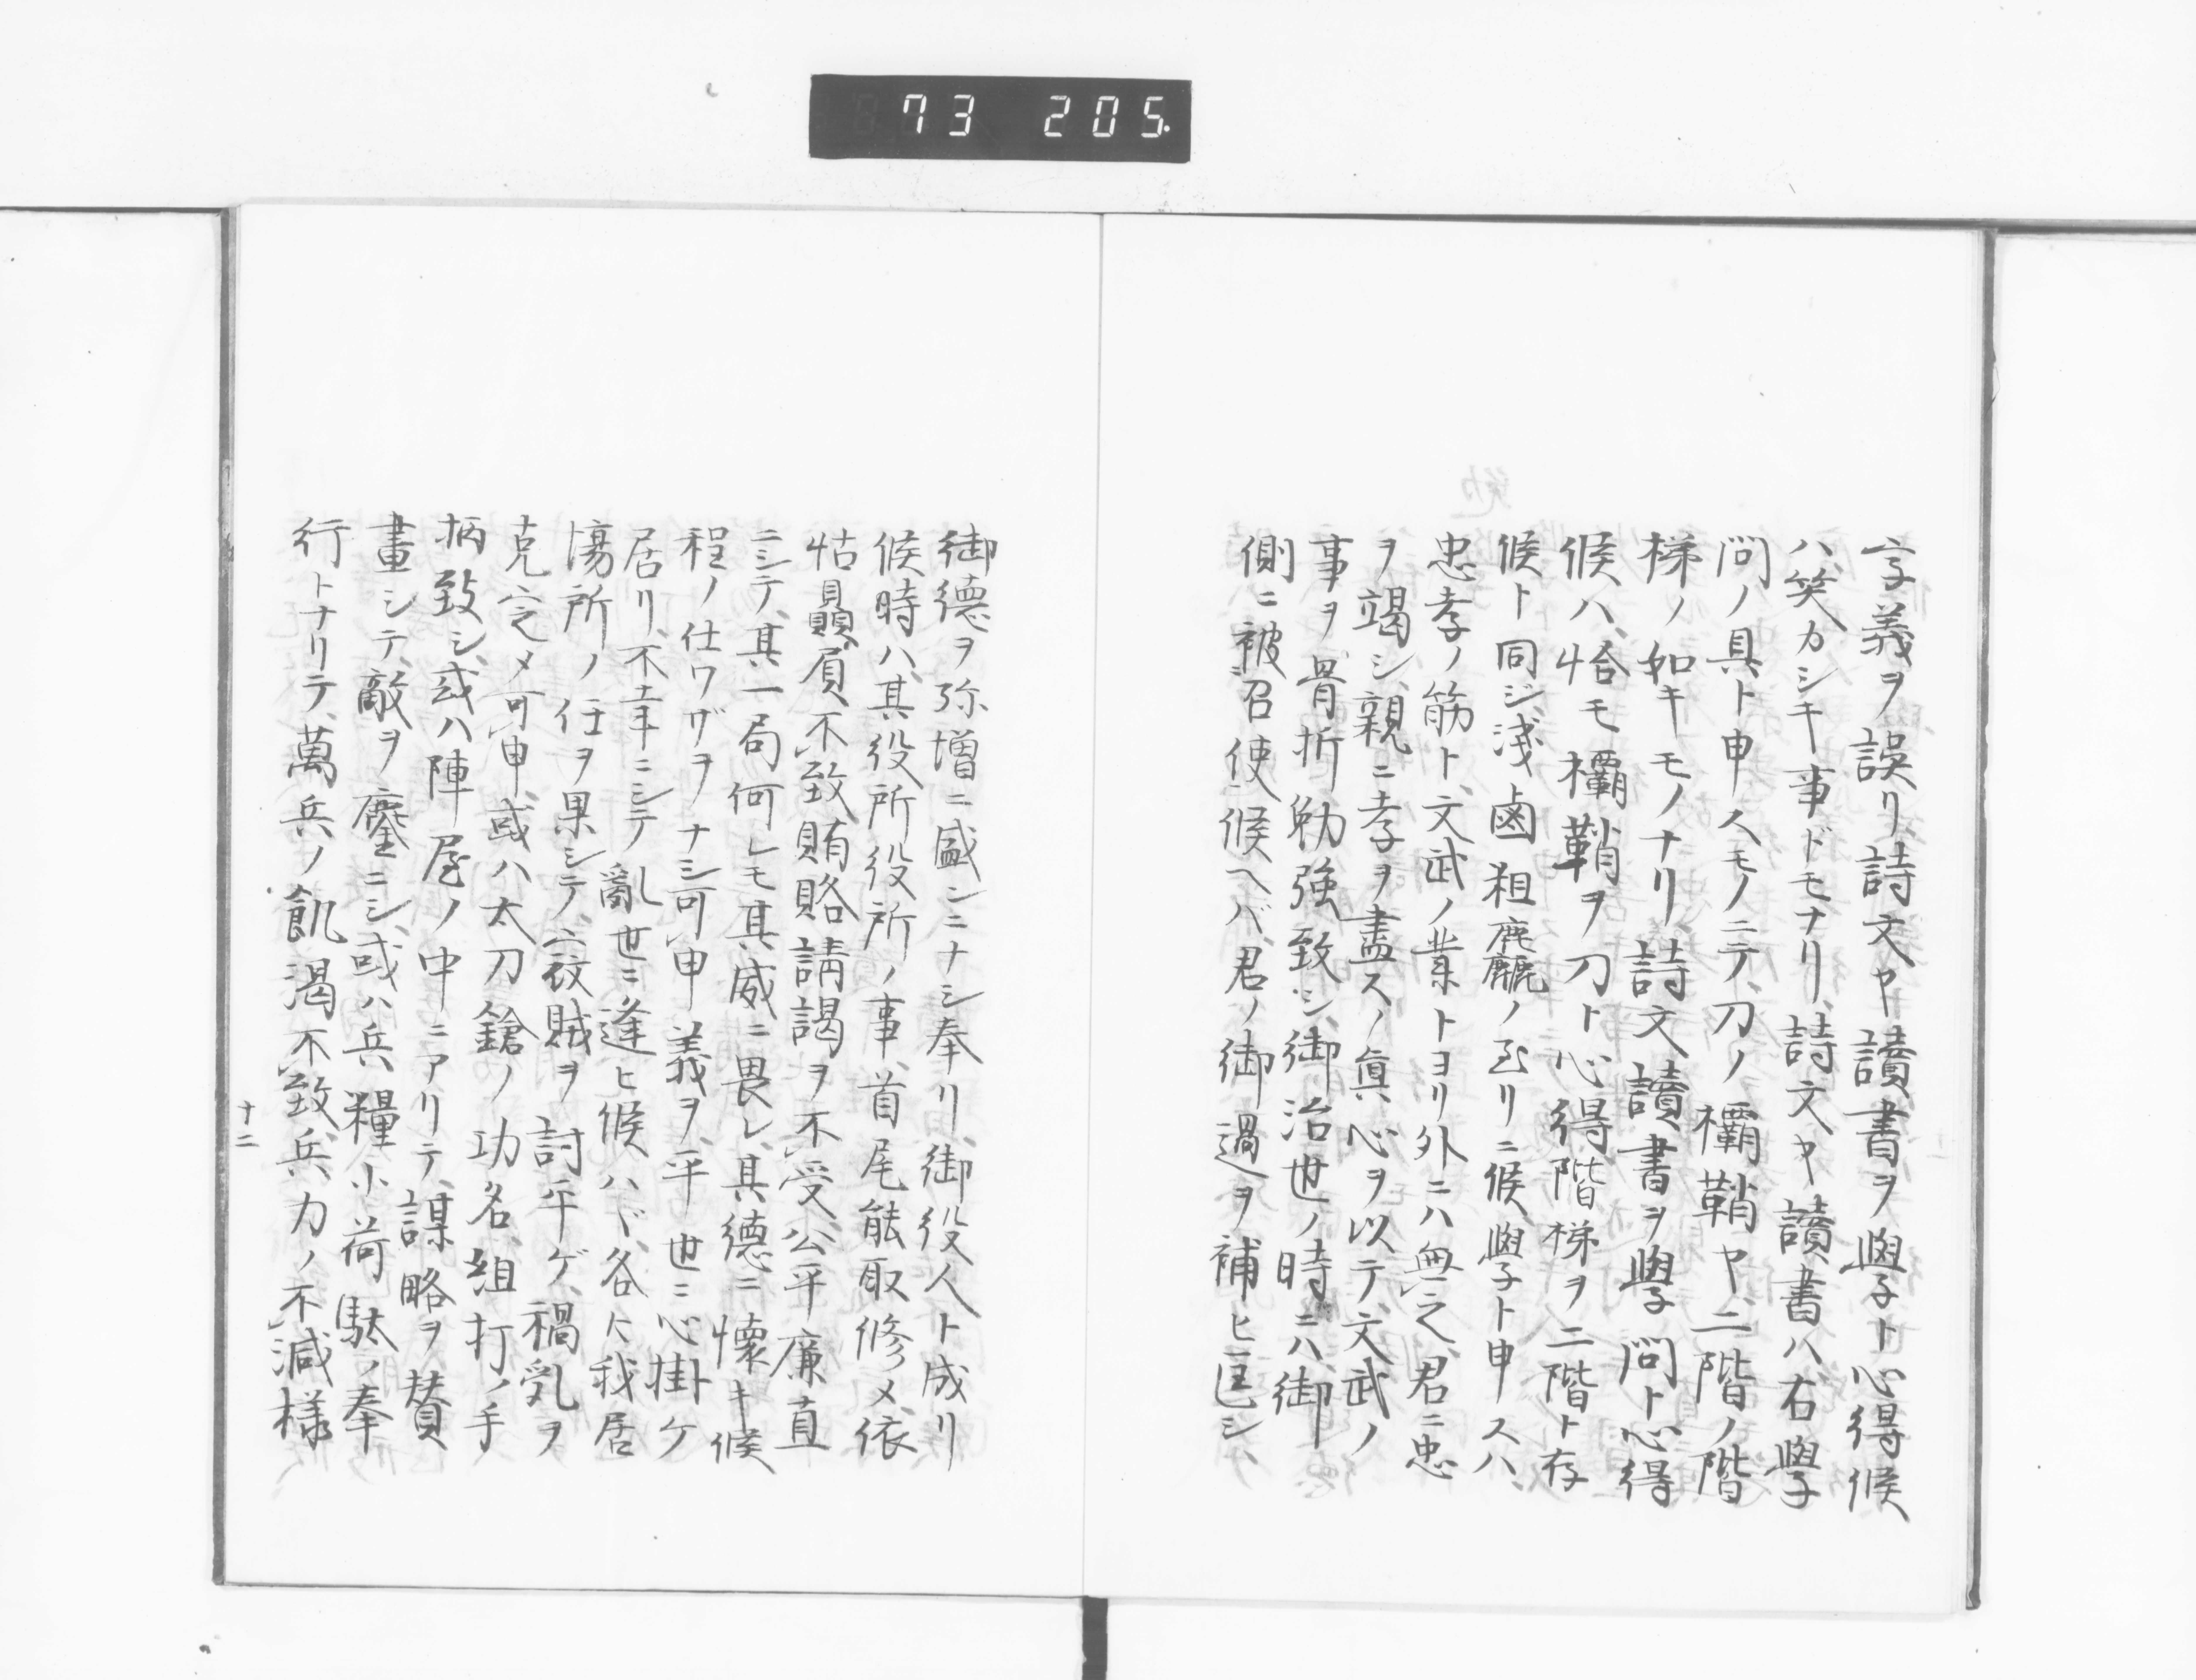 73 205.
字義ヲ誤リ詩文ヤ讀書ヲ學ト心得候
ハ、笑カシキ事ドモナリ、詩文ヤ讀書ハ、右學
問ノ具ト申スモノニテ、刀ノ欛鞘ヤ、二階ノ階
梯ノ如キモノナリ、詩文讀書ヲ學問ト心得
候ハ、恰モ欛鞘ヲ刀ト心得、階梯ヲ二階ト存
候ト同ジ、淺鹵粗麤ノ至リニ候、學ト申スハ、
忠孝ノ筋ト、文武ノ業トヨリ外ニハ無之、君ニ忠
ヲ竭シ、親ニ孝ヲ盡スノ眞心ヲ以テ、文武ノ
事ヲ骨折勅強致シ、御治世ノ時ニハ、御
側ニ被召使候ヘバ、君ノ御過ヲ補ヒ匡シ、
御德ヲ弥增ニ盛ンニナシ奉リ、御役人ト成リ
候時ハ、其役所役所ノ事、首尾能取修メ、依
怙贔屓不致、賄賂請謁ヲ不受、公平廉直
ニシテ、其一局何レモ其威ニ畏レ、其德ニ懷キ候
程ノ仕ワザヲナシ可申義ヲ、平世ニ心掛ケ
居リ、不幸ニシテ亂世ニ逢ヒ候ハヾ、各々我居
場所ノ任ヲ果シテ、寇賊ヲ討平ゲ、禍乱ヲ
克定メ可申、或ハ太刀鎗ノ功名、組打ノ手
柄致シ、或ハ陣屋ノ中ニアリテ、謀略ヲ賛
畫シテ、敵ヲ鏖ニシ、或ハ兵糧小荷駄ノ奉
行トナリテ、萬兵ノ飢渴不致、兵力ノ不減様
十二